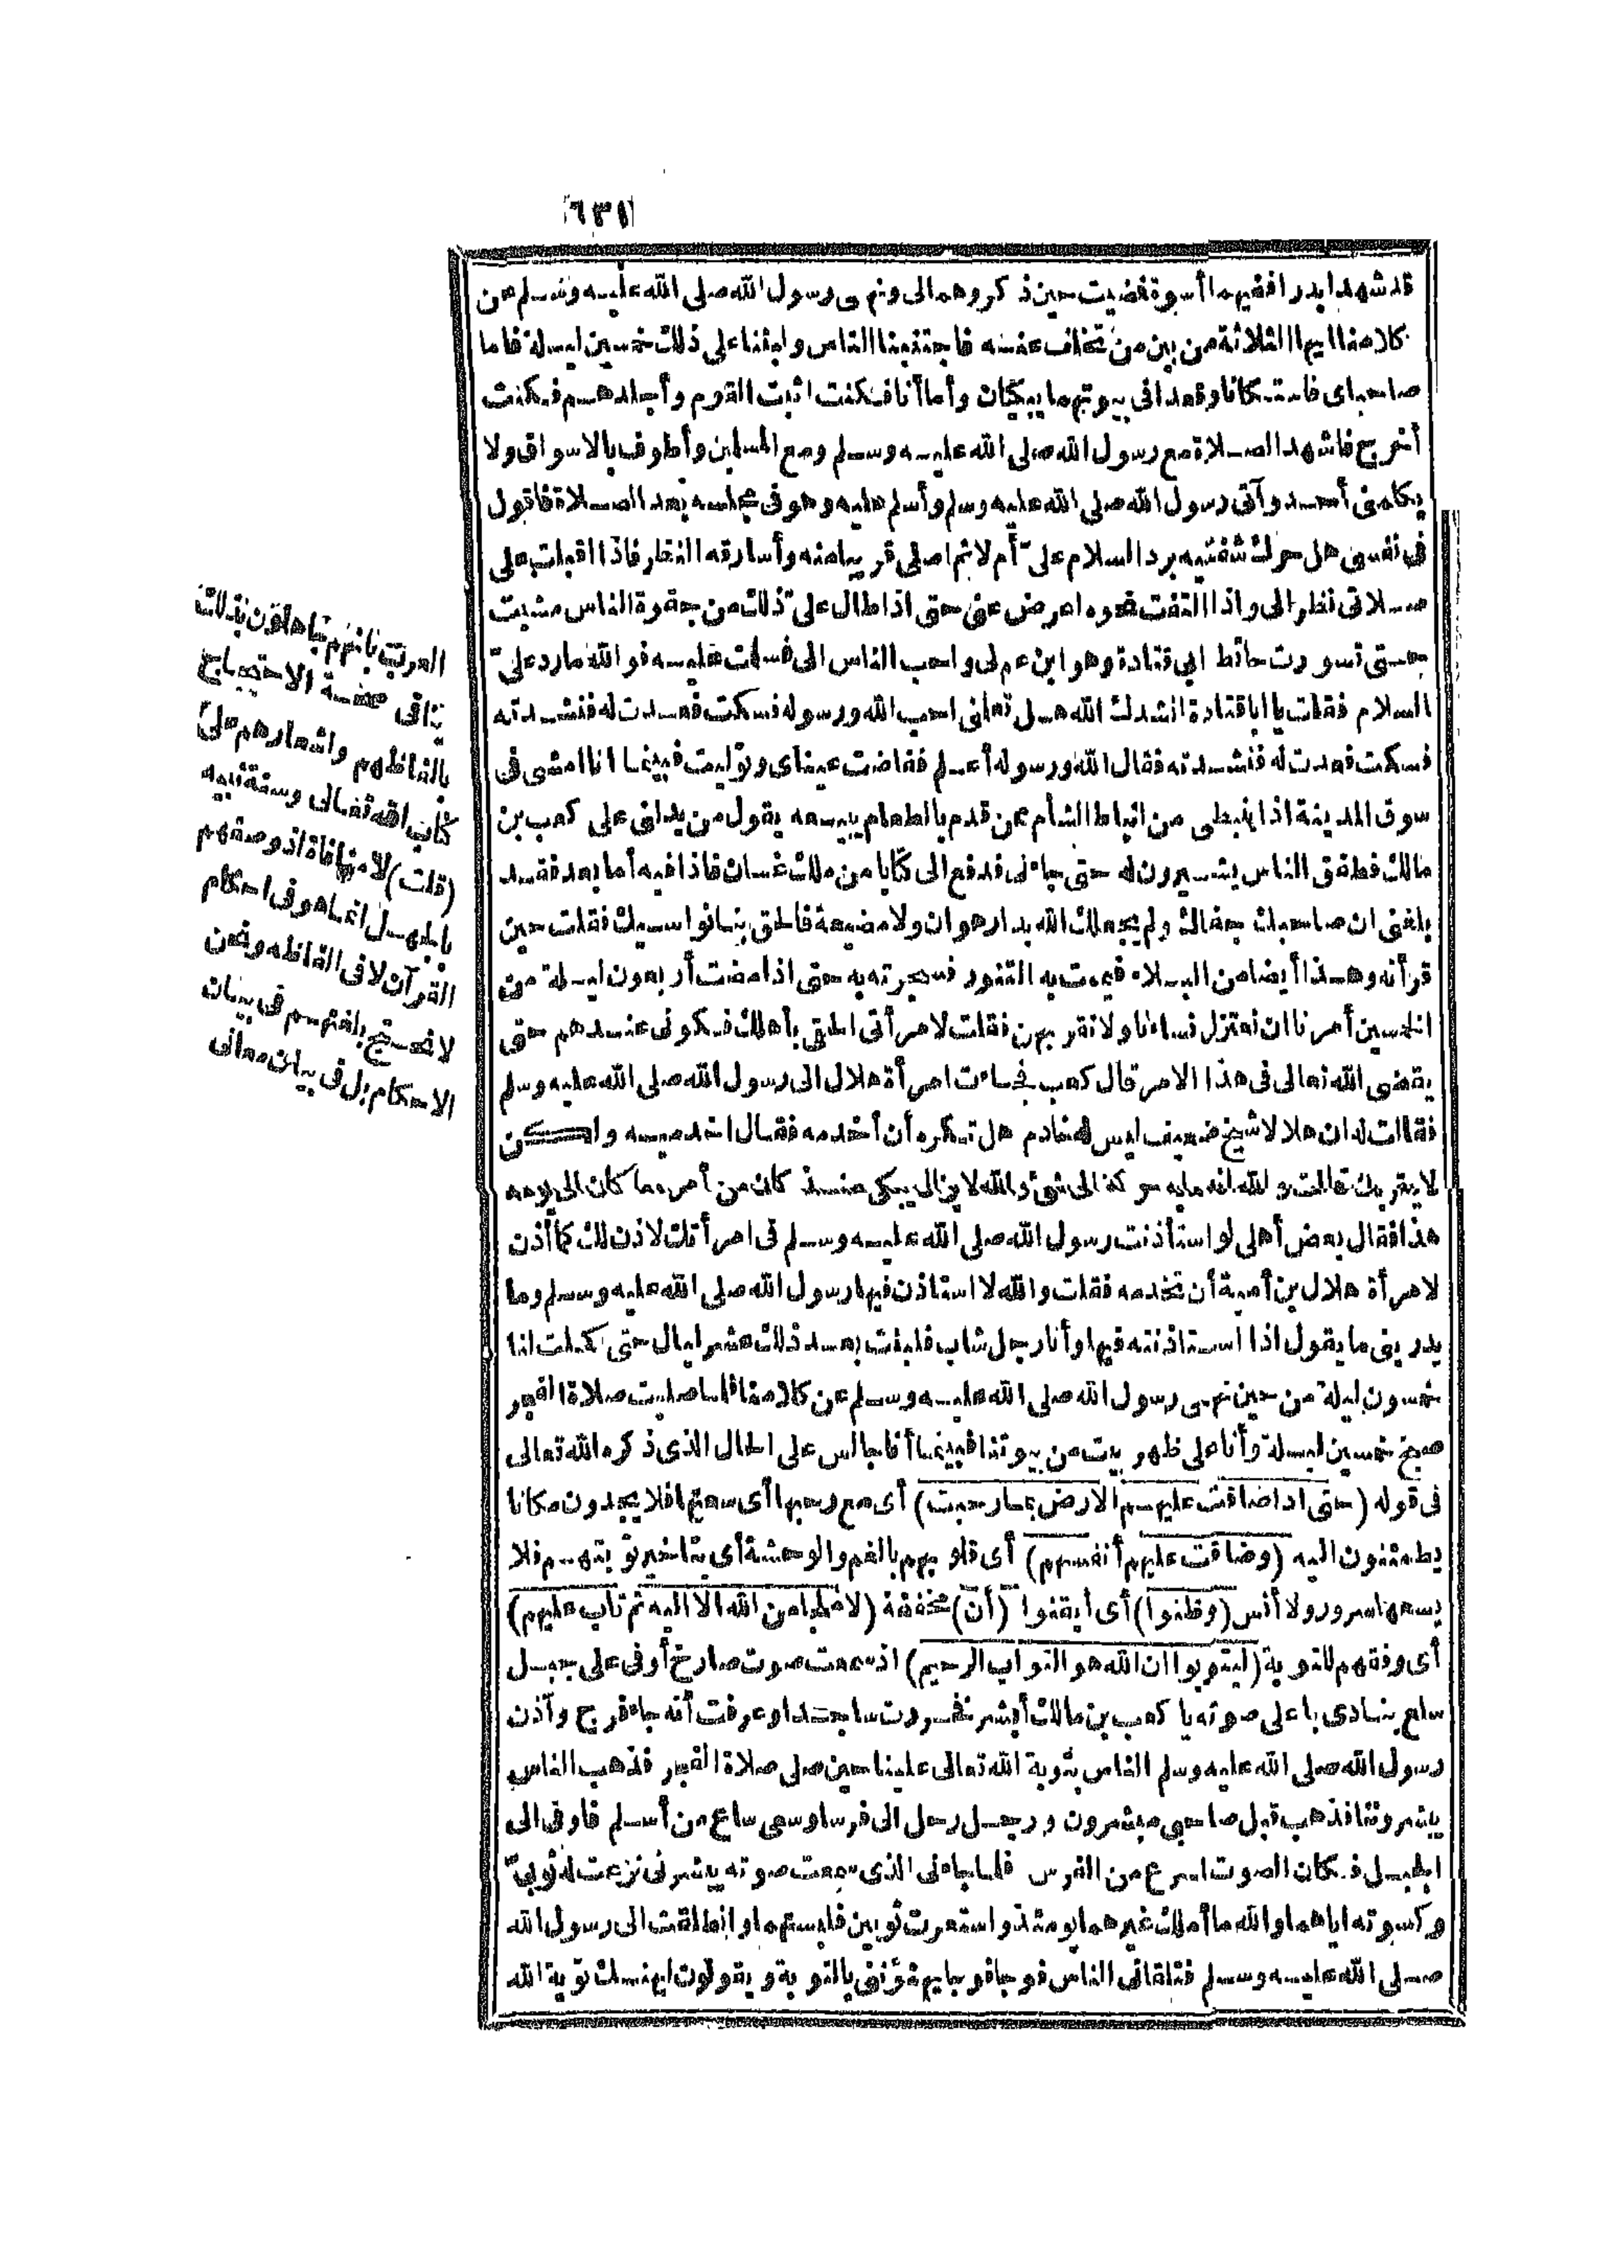 ٦٣١
قد شهدا بدرا ففيهما أسوة فمضيت حين ذكروهما لى ونهى رسول الله صلى الله عليه وسلم عن
كلامنا ايها الثلاثة من بين من تخلف عنه فاجتنبنا الناس ولبثنا على ذلك خمسين ليلة فاما
صاحباى فاستكانا وقعدا فى بيوتهما يبكيان وأما أنا فكنت اثبت القوم وأجلدهم فكنت
أخرج فاشهد الصلاة مع رسول الله صلى الله عليه وسلم ومع المسلمين وأطوف بالاسواق ولا
يكلمنى أحد وآتى رسول الله صلى الله عليه وسلم وأسلم عليه وهو فى مجلسه بعد الصلاة فاقول
فى نفسى هل حرك شفتيه برد السلام علىّ أم لا ثم اصلى قريبا منه وأسارقه النظر فاذا اقبلت على
صلاتى نظر الى واذا التفت نحوه اعرض عنى حتى اذا طال علىّ ذلك من جفوة الناس مشيت
حتى تسورت حائط ابى قتادة وهو ابن عمى واحب الناس الى فسلمت عليه فوالله ما رد علىّ
السلام فقلت يا ابا قتادة انشدك الله هل تعلمنى احب الله ورسوله فسكت فعدت له فنشدته
فسكت فعدت له فنشدته فقال الله ورسوله أعلم ففاضت عيناى وتوليت فبينما انا امشى فى
سوق المدينة اذا نبطى من انباط الشأم ممن قدم بالطعام يبيعه يقول من يدلنى على كعب بن
مالك فطفق الناس يشيرون له حتى جاءنى فدفع الى كتابا من ملك غسان فاذا فيه أما بعد فقد
بلغنى ان صاحبك جفاك ولم يجعلك الله بدار هوان ولا مضيعة فالحق بنا نواسيك فقلت حين
قرأته وهذا أيضا من البلاء فيممت به التنور فسجرته به حتى اذا مضت أربعون ليلة من
الخمسين أمرنا ان نعتزل نساءنا ولا نقربهن فقلت لامرأتى الحقى باهلك فكونى عندهم حتى
يقضى الله تعالى فى هذا الامر قال كعب فجاءت امرأة هلال الى رسول الله صلى الله عليه وسلم
فقالت له ان هلالا شيخ ضعيف ليس له خادم هل تكره أن أخدمه فقال اخدميه ولكن
لا يقربك قالت والله انه ما به حركة الى شئ والله لا يزال يبكى منذ كان من أمره ما كان الى يومه
هذا فقال بعض أهلى لو استأذنت رسول الله صلى الله عليه وسلم فى امرأتك لاذن لك كما أذن
لامرأة هلال بن أمية أن تخدمه فقلت والله لا استاذن فيها رسول الله صلى الله عليه وسلم وما
يدرينى ما يقول اذا استاذنته فيها وأنا رجل شاب فلبثت بعد ذلك عشر ليال حتى كملت لنا
خمسون ليلة من حين نهى رسول الله صلى الله عليه وسلم عن كلامنا فلما صليت صلاة الفجر
صبح خمسين ليلة وأنا على ظهر بيت من بيوتنا فبينما أنا جالس على الحال الذى ذكره الله تعالى
فى قوله (حتى اذا ضاقت عليهم الارض بما رحبت) أى مع رحبها أى سعتها فلا يجدون مكانا
يطمئنون اليه (وضاقت عليهم أنفسهم) أى قلوبهم بالغم والوحشة أى بتاخير توبتهم فلا
يسعها سرور ولا أنس (وظنوا) أى أيقنوا (أن) مخففة (لا ملجا من الله الا اليه ثم تاب عليهم)
أى وفقهم للتوبة (ليتوبوا ان الله هو التواب الرحيم) اذ سمعت صوت صارخ أوفى على جبل
سلع ينادى باعلى صوته يا كعب بن مالك أبشر فخررت ساجدا وعرفت أنه جاء فرج وآذن
رسول الله صلى الله عليه وسلم الناس بتوبة الله تعالى علينا حين صلى صلاة الفجر فذهب الناس
يبشروننا فذهب قبل صاحبى مبشرون ورجل رحل الى فرسا وسعى ساع من أسلم فاوفى الى
الجبل فكان الصوت اسرع من الفرس فلما جاءنى الذى سمعت صوته يبشرنى نزعت له ثوبىّ
وكسوته اياهما والله ما أملك غيرهما يومئذ واستعرت ثوبين فلبستهما وانطلقت الى رسول الله
صلى الله عليه وسلم فتلقانى الناس فوجا فوجا يهنؤننى بالتوبة ويقولون ليهنك توبة الله
العرب بانهم جاهلون بذلك
ينافى صحة الاحتجاج
بالفاظهم واشعارهم على
كتاب الله تعالى وسنة نبيه
(قلت) لا منافاة اذ وصفهم
بالجهل انما هو فى احكام
القرآن لا فى الفاظه ونحن
لا نحتج بلغتهم فى بيان
الاحكام بل فى بيان معانى